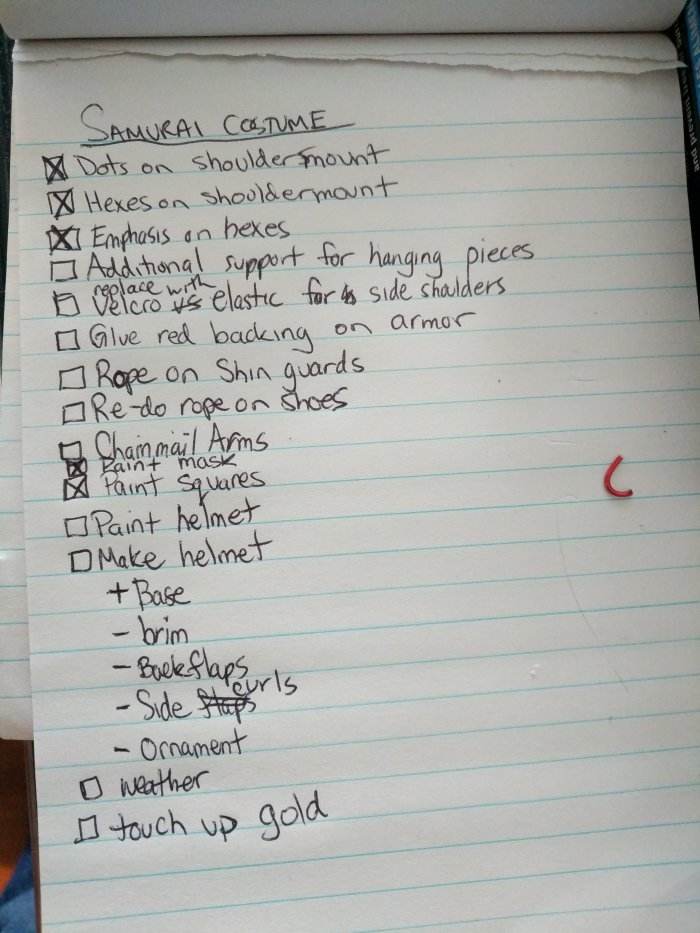 SAMURAI COSTUME
☒ Dots on shoulder mount
☒ Hexes on shoulder mount
☒ Emphasis on hexes
☐ Additional support for hanging pieces
replace with
☐ Velcro elastic for side shoulders
☐ Glue red backing on armor
☐ Rope on Shin guards
☐ Re-do rope on shoes
☐ Chainmail Arms
☒ Paint mask
☒ Paint squares
☐ Paint helmet
☐ Make helmet
+ Base
- brim
- Backflaps
curls
- Side flaps
- Ornament
☐ weather
☐ touch up gold